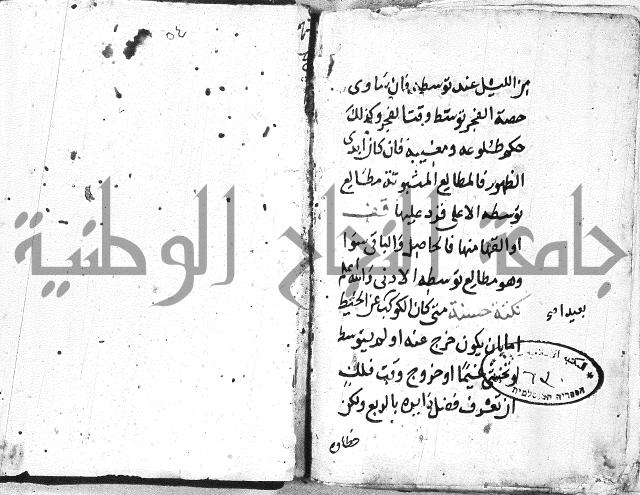 من الليل عند توسطه فان ساوى
حصة الفجر توسط وقت الفجر وكذلك
حكم طلوعه ومغيبه فان كان ابدي
الظهور فالمطالع المثبوتة مطالع
توسطه الاعلى فزد عليها قف
او القها منها فالحاصل والباقي سوا
وهو مطالع توسطه الادنى والله اعلم
نكتة حسنة متى كان الكوكب عن الخيط
بعيدا
اما بان يكون خرج عنه او لم يتوسط
او تخشى غيما او خروج وقت فلك
ان تعرف فضل دايره بالربع ولكن
جامعة النجاح الوطنية